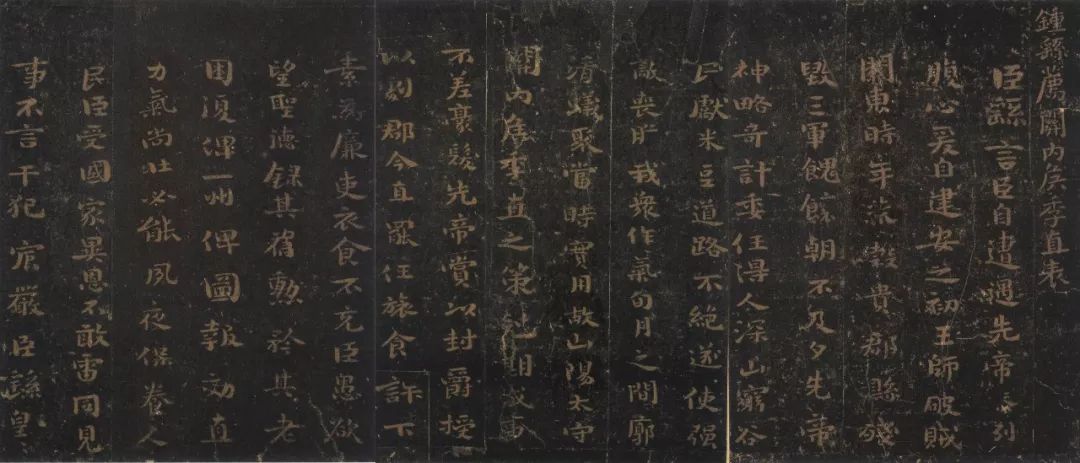 鍾繇薦關內侯季直表
臣繇言臣自遭遇先帝忝列
腹心爰自建安之初王師破賊
關東時年荒穀貴郡縣殘
毀三軍餽饟朝不及夕先帝
神略奇計委任得人深山窮谷
民獻米豆道路不絕遂使強
敵喪膽我眾作氣旬月之間廓
清蟻聚當時實用故山陽太守
關內侯季直之策剋期成事
不差豪髮先帝賞以封爵授
以劇郡今直罷任旅食許下
素為廉吏衣食不充臣愚欲
望聖德錄其舊勳矜其老
困復俾一州俾圖報効直
力氣尚壯必能夙夜保養人
民臣受國家異恩不敢雷同見
事不言干犯宸嚴臣繇皇